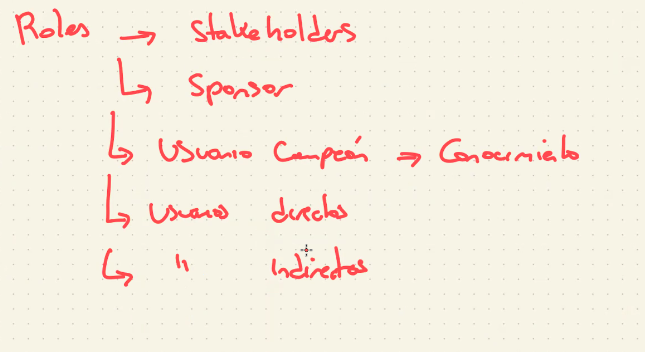 Roles → Stakeholders
↳ Sponsor
↳ Usuario Campeón → Conocimiento
↳ Usuarios directos
↳ " Indirectos